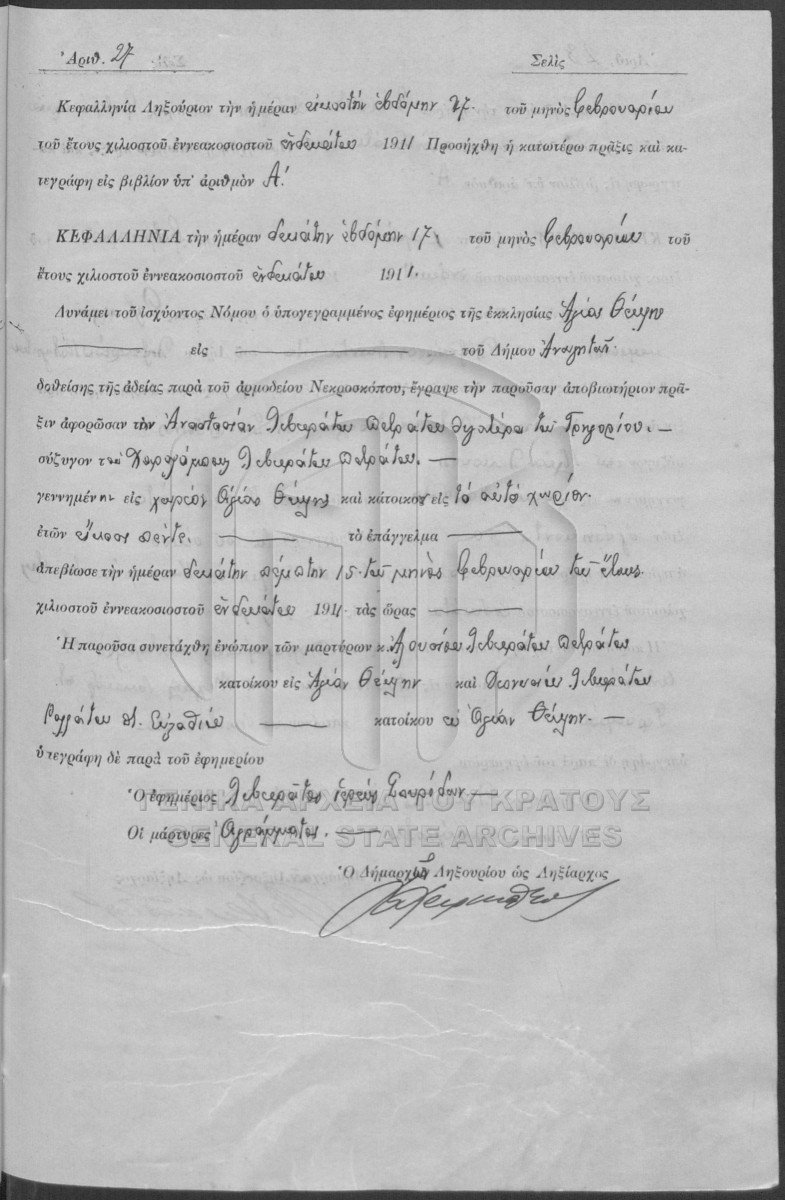 Ἀριθ. 27 Σελὶς
Κεφαλληνία Ληξούριον τὴν ἡμέραν εἰκοστὴν ἑβδόμην 27 τοῦ μηνὸς Φεβρουαρίου
τοῦ ἔτους χιλιοστοῦ ἐννεακοσιοστοῦ ἑνδεκάτου 1911 Προσήχθη ἡ κατωτέρω πρᾶξις καὶ κα-
τεγράφη εἰς βιβλίον ὑπ' ἀριθμὸν Α'.
ΚΕΦΑΛΛΗΝΙΑ τὴν ἡμέραν δεκάτην ἑβδόμην 17 τοῦ μηνὸς Φεβρουαρίου τοῦ
ἔτους χιλιοστοῦ ἐννεακοσιοστοῦ ἑνδεκάτου 1911.
Δυνάμει τοῦ ἰσχύοντος Νόμου ὁ ὑπογεγραμμένος ἐφημέριος τῆς ἐκκλησίας Ἁγίας Θέκλης
εἰς τοῦ Δήμου Ἀνωγῆς
δοθείσης τῆς ἀδείας παρὰ τοῦ ἁρμοδείου Νεκροσκόπου, ἔγραψε τὴν παροῦσαν ἀποβιωτήριον πρᾶ-
ξιν ἀφορῶσαν τὴν Ἀναστασίαν Λιβιεράτου Πετράτου θυγατέρα τοῦ Γρηγορίου.
σύζυγον τοῦ Χαραλάμπους Λιβιεράτου Πετράτου.
γεννημένην εἰς χωρίον Ἁγίαν Θέκλης καὶ κάτοικον εἰς τὸ αὐτὸ χωρίον.
ἐτῶν εἴκοσι πέντε. τὸ ἐπάγγελμα
ἀπεβίωσε τὴν ἡμέραν δεκάτην πέμπτην 15 τοῦ μηνὸς Φεβρουαρίου τοῦ ἔτους
χιλιοστοῦ ἐννεακοσιοστοῦ ἑνδεκάτου 1911. τὰς ὥρας
Ἡ παροῦσα συνετάχθη ἐνώπιον τῶν μαρτύρων κ. Λιβιεράτου Πετράτου
κατοίκου εἰς Ἁγίαν Θέκλην καὶ Διονυσίου Λιβιεράτου
κατοίκου εἰς Ἁγίαν Θέκλην.
ὑπεγράφη δὲ παρὰ τοῦ ἐφημερίου
Ὁ ἐφημέριος Λιβιεράτος ἱερεὺς
Οἱ μάρτυρες Ἀγράμματοι.
Ὁ Δήμαρχος Ληξουρίου ὡς Ληξίαρχος
ΓΕΝΙΚΑ ΑΡΧΕΙΑ ΤΟΥ ΚΡΑΤΟΥΣ
GENERAL STATE ARCHIVES